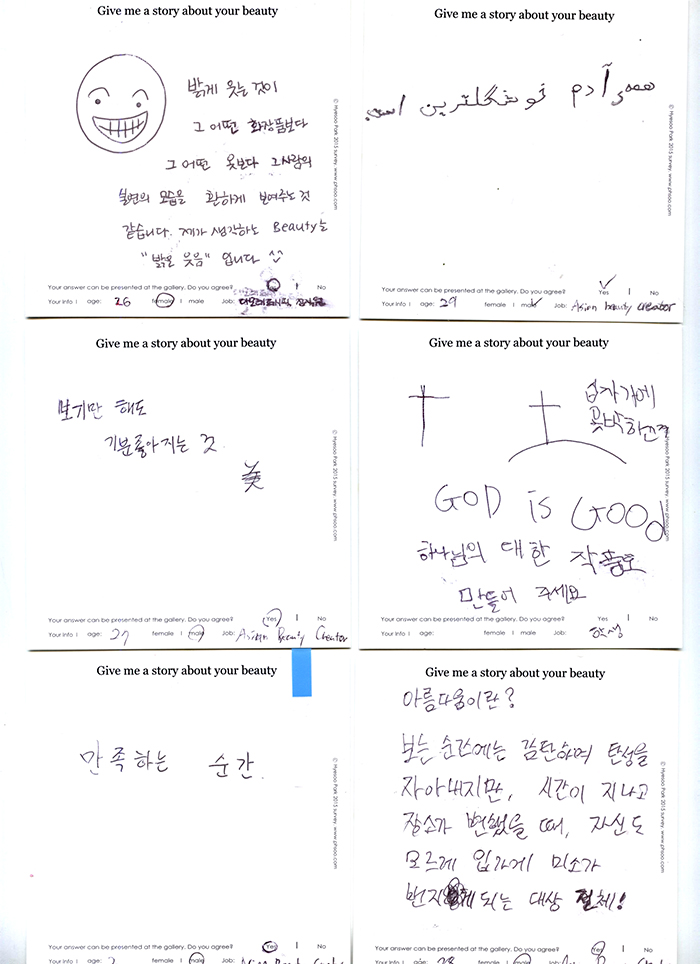 Give me a story about your beauty
밝게 웃는 것이
그 어떤 화장품보다
그 어떤 옷보다 그사람의
내면의 모습을 환하게 보여주는 것
같습니다. 제가 생각하는 Beauty는
"밝은 웃음" 입니다 ^^
© Hyewoo Park 2015 survey. www.phooo.com
Your answer can be presented at the gallery. Do you agree? Yes I No
Your info I age: 26 female I male Job:
Give me a story about your beauty
همه‌ی آدم خوشگلترین است
© Hyewoo Park 2015 survey. www.phooo.com
Your answer can be presented at the gallery. Do you agree? Yes I No
Your info I age: 29 female I male Job: Asian beauty creator
Give me a story about your beauty
보기만 해도
기분좋아지는 것
美
© Hyewoo Park 2015 survey. www.phooo.com
Your answer can be presented at the gallery. Do you agree? Yes I No
Your info I age: 27 female I male Job: Asian Beauty Creator
Give me a story about your beauty
십자가에
못박하신적
GOD is GOOd
하나님의 대한 작품도
만들어 주세요
© Hyewoo Park 2015 survey. www.phooo.com
Your answer can be presented at the gallery. Do you agree? Yes I No
Your info I age: female I male Job: 학생
Give me a story about your beauty
만족하는 순간.
© Hyewoo Park 2015 survey. www.phooo.com
Your answer can be presented at the gallery. Do you agree? Yes I No
Give me a story about your beauty
아름다움이란?
보는 순간에는 감탄하여 탄성을
자아내지만, 시간이 지나고
장소가 변했을 때, 자신도
모르게 입가에 미소가
번지게 되는 대상 전체!
© Hyewoo Park 2015 survey. www.phooo.com
Your answer can be presented at the gallery. Do you agree? Yes I No